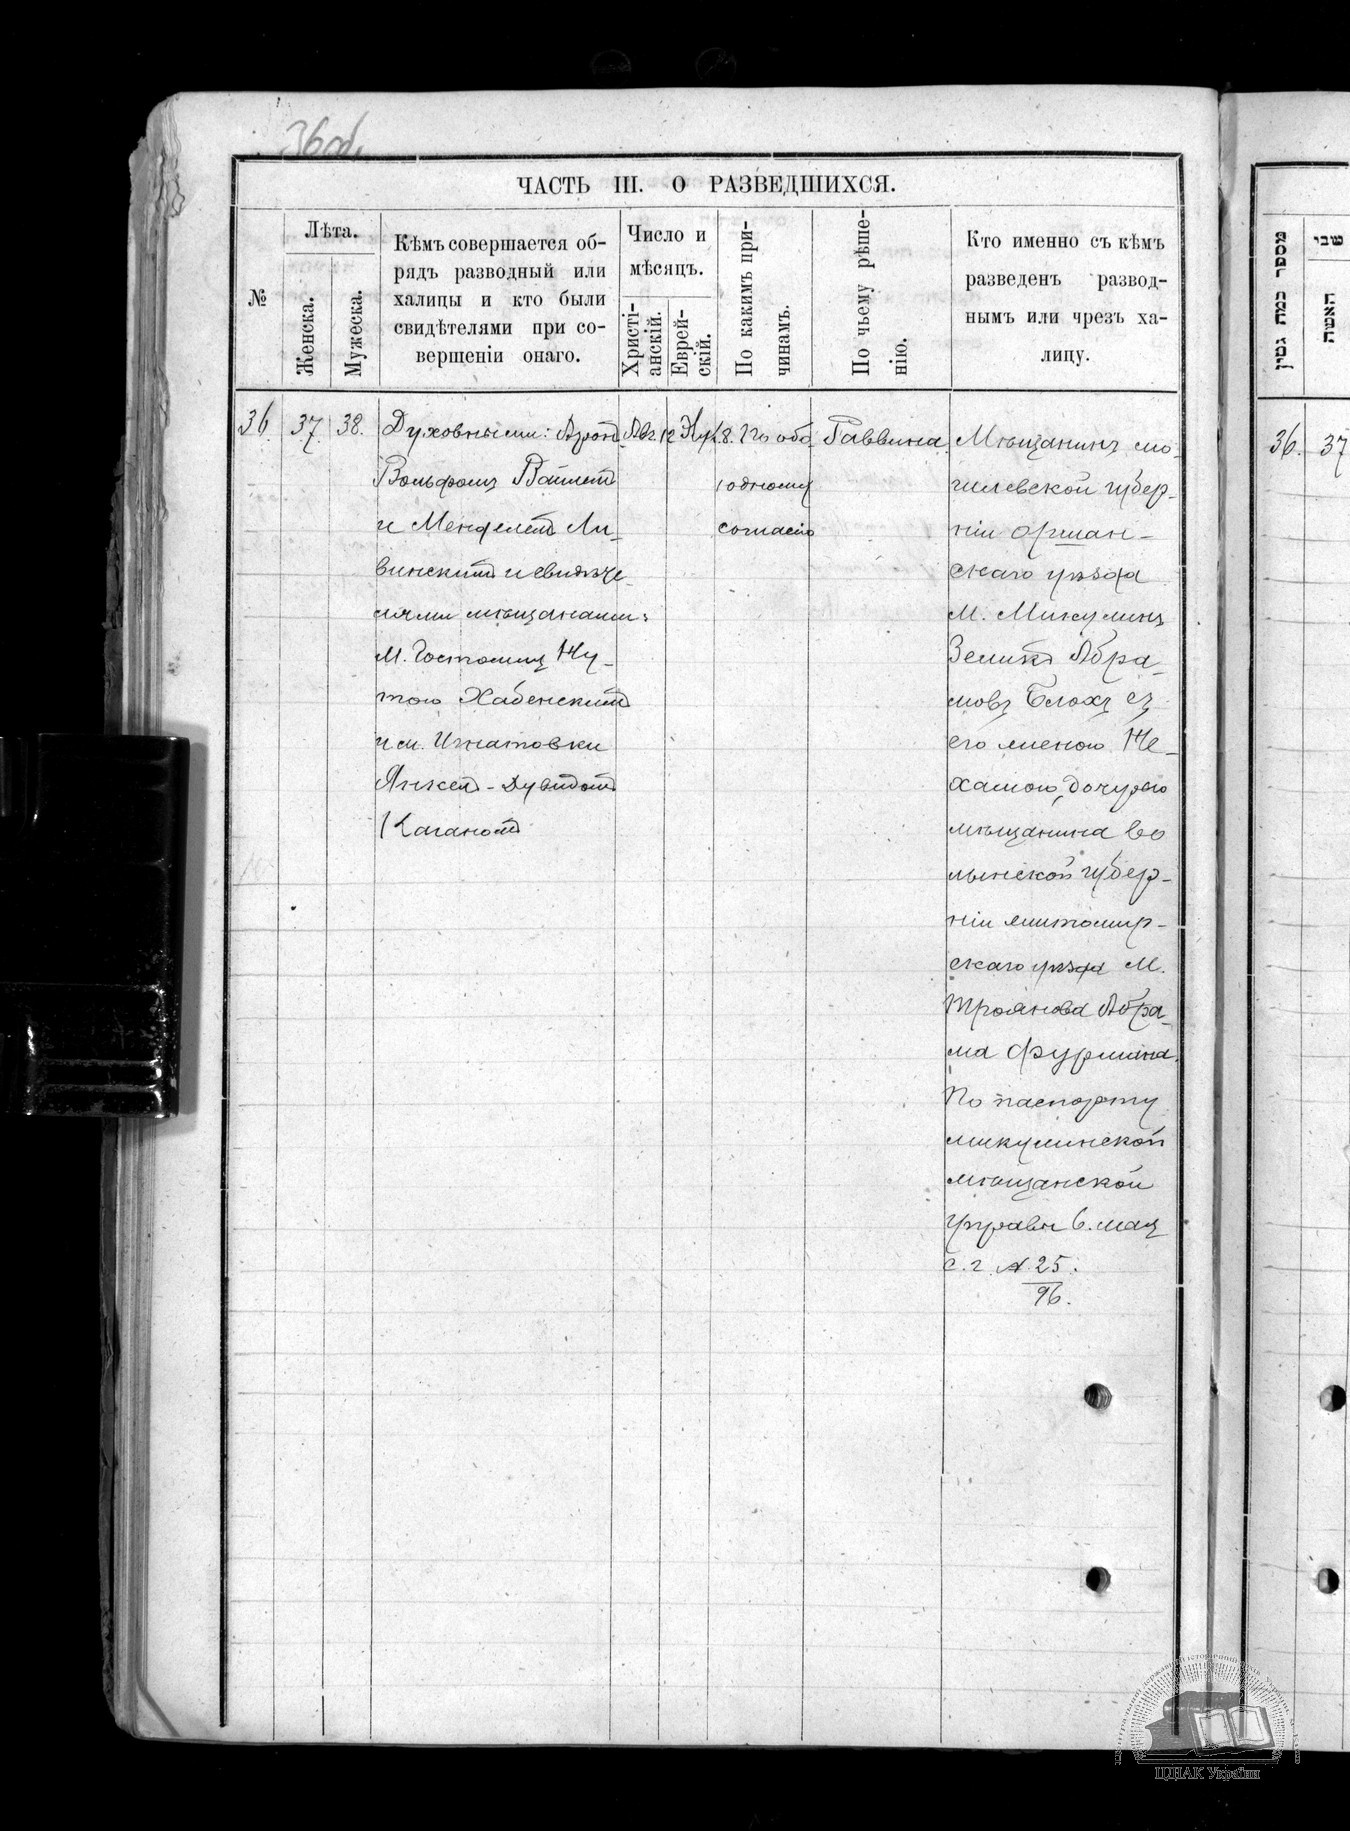 36 об.
ЧАСТЬ III. О РАЗВЕДШИХСЯ.
№
Лѣта.
Женска.
Мужеска.
Кѣмъ совершается об-
рядъ разводный или
халицы и кто были
свидѣтелями при со-
вершеніи онаго.
Число и
мѣсяцъ.
Христі-
анскій.
Еврей-
скій.
По какимъ при-
чинамъ.
По чьему рѣше-
нію.
Кто именно съ кѣмъ
разведенъ развод-
нымъ или чрезъ ха-
лицу.
36.
37.
38.
Духовными: Арон
Вольфомъ
и Менделемъ Ли-
винскимъ и свидѣте-
лями мѣщанами:
м. Гостомля Ну-
тою Хабенскимъ
и м. Игнатовки
Янкел-Дувидомъ
Каганомъ
Авг. 12
18.
По обо
юдному
согласію
Раввина.
Мѣщанинъ мо-
гилевской губер-
ніи Оршан-
скаго уѣзда
м. Микулина
Зеликъ Абра-
мовъ Блохъ съ
его женою Не-
хамою, дочерью
мѣщанина во
лынской губер-
ніи житомир-
скаго уѣзда м.
Троянова Абра-
ма Фурмана.
По паспорту
микулинской
мѣщанской
управы 6. мая
с. г. № 25.
96.
מספר כמה גטין
שני
האשה
36.
37
ЦДІАК України